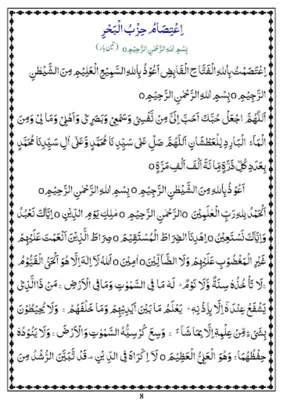 اِعْتِصَامُ حِزْبُ الْبَحْرِ
بِسْمِ اللهِ الرَّحْمٰنِ الرَّحِيْمِ○ (تین بار)
اِعْتَصَمْتُ بِاللهِ الْفَتَّاحِ الْقَابِضِ اَعُوْذُ بِاللهِ السَّمِيْعِ الْعَلِيْمِ مِنَ الشَّيْطٰنِ
الرَّجِيْمِ○ بِسْمِ اللهِ الرَّحْمٰنِ الرَّحِيْمِ○
اَللّٰهُمَّ اجْعَلْ حُبَّكَ اَحَبَّ اِلَيَّ مِنْ نَّفْسِيْ وَسَمْعِيْ وَبَصَرِيْ وَاَهْلِيْ وَمَالِيْ وَمِنَ
الْمَآءِ الْبَارِدِ لِلْعَطْشَانِ اَللّٰهُمَّ صَلِّ عَلٰى سَيِّدِنَا مُحَمَّدٍ وَّعَلٰى اٰلِ سَيِّدِنَا مُحَمَّدٍ
بِعَدَدِ كُلِّ ذَرَّةٍ مِّائَةَ اَلْفِ اَلْفِ مَرَّةٍ
اَعُوْذُ بِاللهِ مِنَ الشَّيْطٰنِ الرَّجِيْمِ○ بِسْمِ اللهِ الرَّحْمٰنِ الرَّحِيْمِ○
اَلْحَمْدُ لِلّٰهِ رَبِّ الْعٰلَمِيْنَ○ الرَّحْمٰنِ الرَّحِيْمِ○ مٰلِكِ يَوْمِ الدِّيْنِ○ اِيَّاكَ نَعْبُدُ
وَاِيَّاكَ نَسْتَعِيْنُ○ اِهْدِنَا الصِّرَاطَ الْمُسْتَقِيْمَ○ صِرَاطَ الَّذِيْنَ اَنْعَمْتَ عَلَيْهِمْ
غَيْرِ الْمَغْضُوْبِ عَلَيْهِمْ وَلَا الضَّآلِّيْنَ○ اٰمِيْنَ○ اَللهُ لَآ اِلٰهَ اِلَّا هُوَ اَلْحَيُّ الْقَيُّوْمُ
لَا تَاْخُذُهٗ سِنَةٌ وَّلَا نَوْمٌ ؕ لَهٗ مَا فِي السَّمٰوٰتِ وَمَا فِي الْاَرْضِ ؕ مَنْ ذَا الَّذِيْ
يَشْفَعُ عِنْدَهٗٓ اِلَّا بِاِذْنِهٖ ؕ يَعْلَمُ مَا بَيْنَ اَيْدِيْهِمْ وَمَا خَلْفَهُمْ ۚ وَلَا يُحِيْطُوْنَ
بِشَيْءٍ مِّنْ عِلْمِهٖٓ اِلَّا بِمَا شَآءَ ۚ وَسِعَ كُرْسِيُّهُ السَّمٰوٰتِ وَالْاَرْضَ ۚ وَلَا يَئُوْدُهٗ
حِفْظُهُمَا ۚ وَهُوَ الْعَلِيُّ الْعَظِيْمُ○ لَآ اِكْرَاهَ فِي الدِّيْنِ ۙ قَدْ تَّبَيَّنَ الرُّشْدُ مِنَ
8